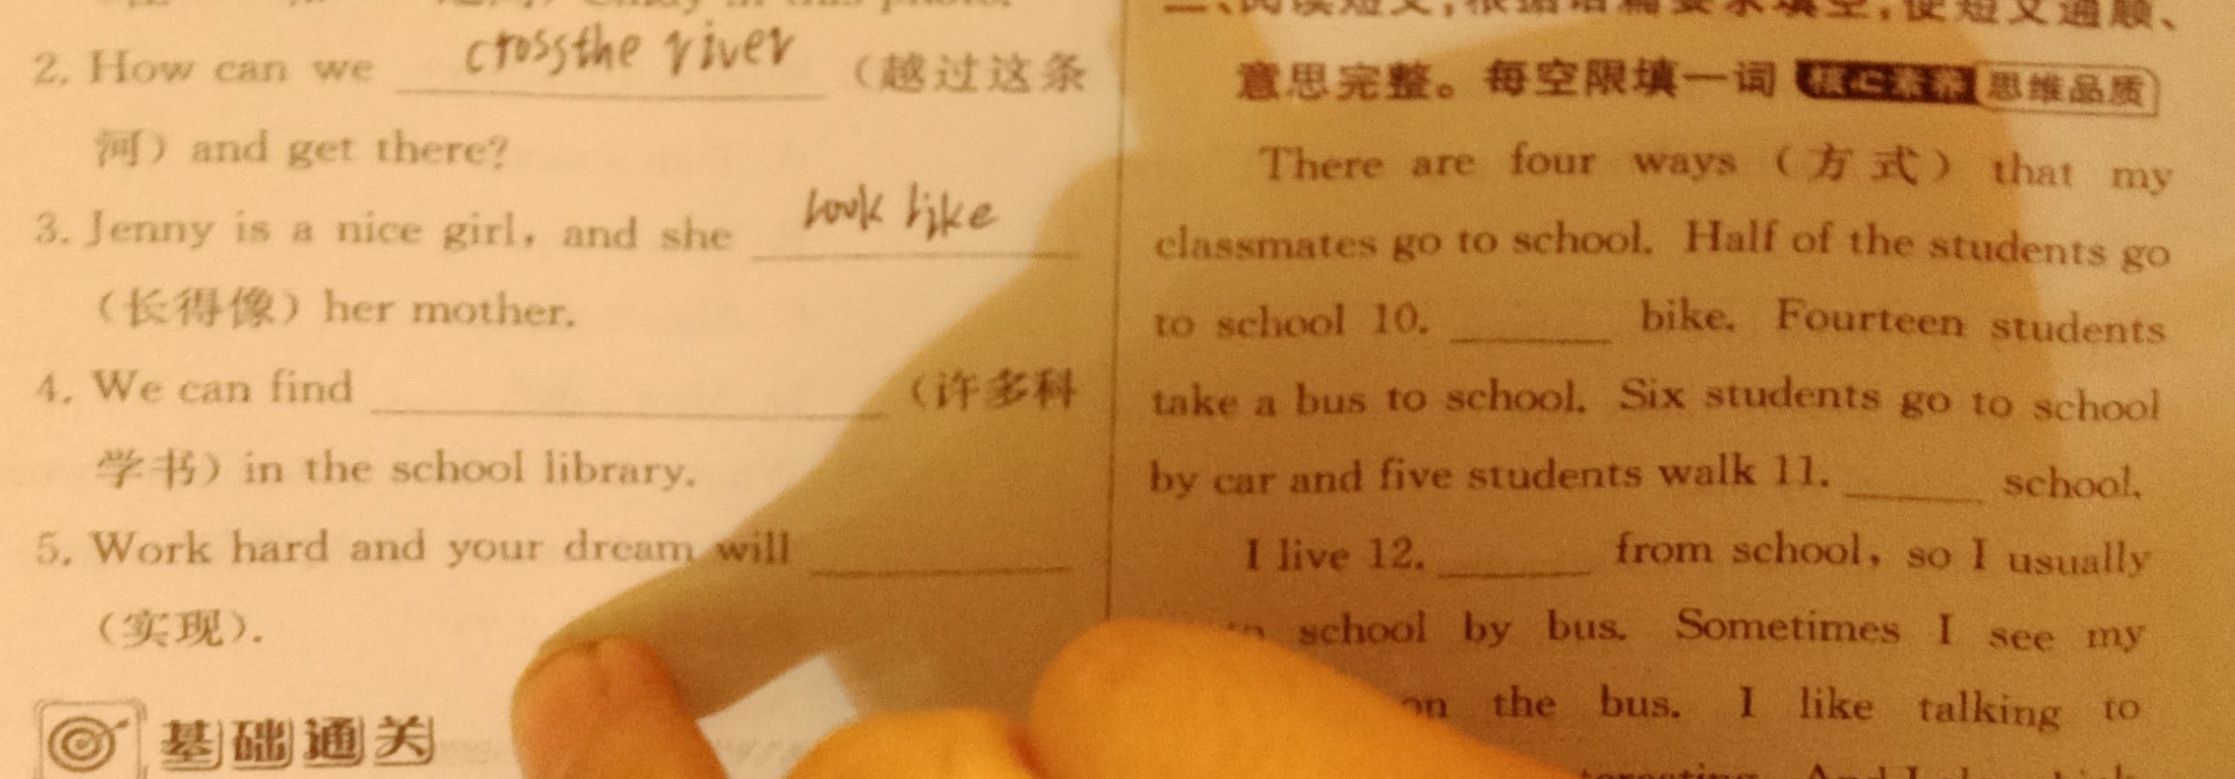 in this photo.
2. How can we cross the river (越过这条
河) and get there?
3. Jenny is a nice girl, and she look like
(长得像) her mother.
4. We can find ____ (许多科
学书) in the school library.
5. Work hard and your dream will ____
(实现).
基础通关
二、阅读短文,根据语篇要求填空,使短文通顺、
意思完整。每空限填一词 核心素养 思维品质
There are four ways (方式) that my
classmates go to school. Half of the students go
to school 10. ____ bike. Fourteen students
take a bus to school. Six students go to school
by car and five students walk 11. ____ school.
I live 12. ____ from school, so I usually
school by bus. Sometimes I see my
on the bus. I like talking to